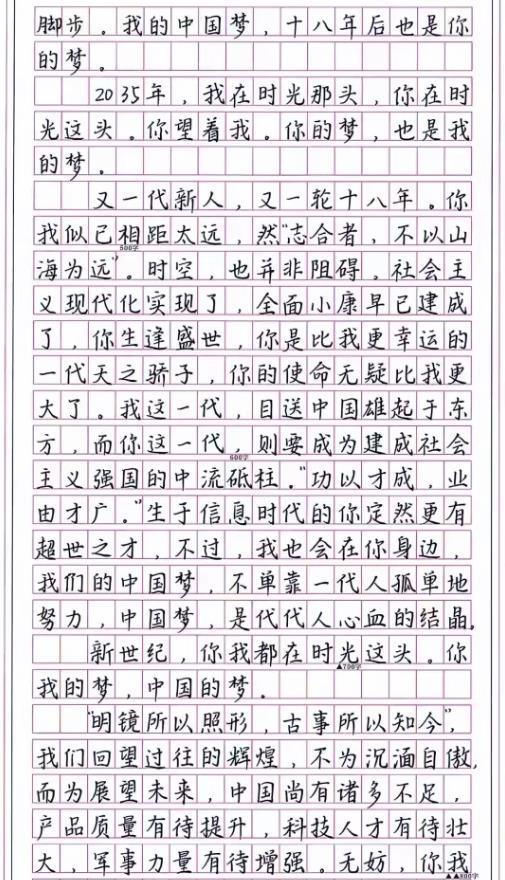 脚步。我的中国梦，十八年后也是你
的梦。
2035年，我在时光那头，你在时
光这头。你望着我。你的梦，也是我
的梦。
又一代新人，又一轮十八年。你
我似已相距太远，然“志合者，不以山
500字
海为远”。时空，也并非阻碍。社会主
义现代化实现了，全面小康早已建成
了，你生逢盛世，你是比我更幸运的
一代天之骄子，你的使命无疑比我更
大了。我这一代，目送中国雄起于东
方，而你这一代，则要成为建成社会
600字
主义强国的中流砥柱。“功以才成，业
由才广。”生于信息时代的你定然更有
超世之才，不过，我也会在你身边，
我们的中国梦，不单靠一代人孤单地
努力，中国梦，是代代人心血的结晶。
新世纪，你我都在时光这头。你
▲700字
我的梦，中国的梦。
“明镜所以照形，古事所以知今”，
我们回望过往的辉煌，不为沉湎自傲，
而为展望未来，中国尚有诸多不足，
产品质量有待提升，科技人才有待壮
大，军事力量有待增强。无妨，你我
▲▲800字